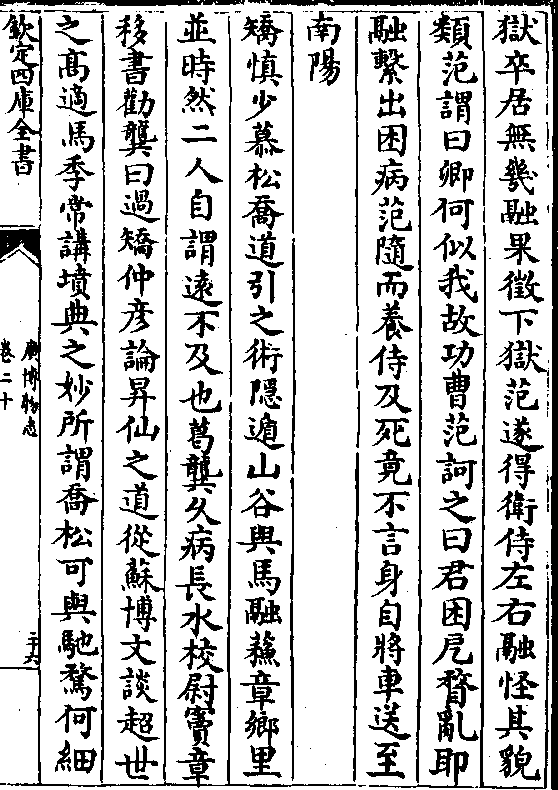 獄卒居無幾融果徴下獄范遂得衛侍左右融怪其貌
類范謂曰卿何似我故功曹范訶之曰君困厄瞀亂耶
融繫出困病范隨而養侍及死竟不言身自將車送至
南陽
矯慎少慕松喬道引之術隠遁山谷與馬融蘇章鄉里
並時然二人自謂逺不及也葛龔久病長水校尉竇章
移書勸龔曰過矯仲彦論昇仙之道從蘇博文談超世
之高適馬季常講墳典之妙所謂喬松可與馳騖何細
欽定四庫全書
廣博物志
卷二十
二十六